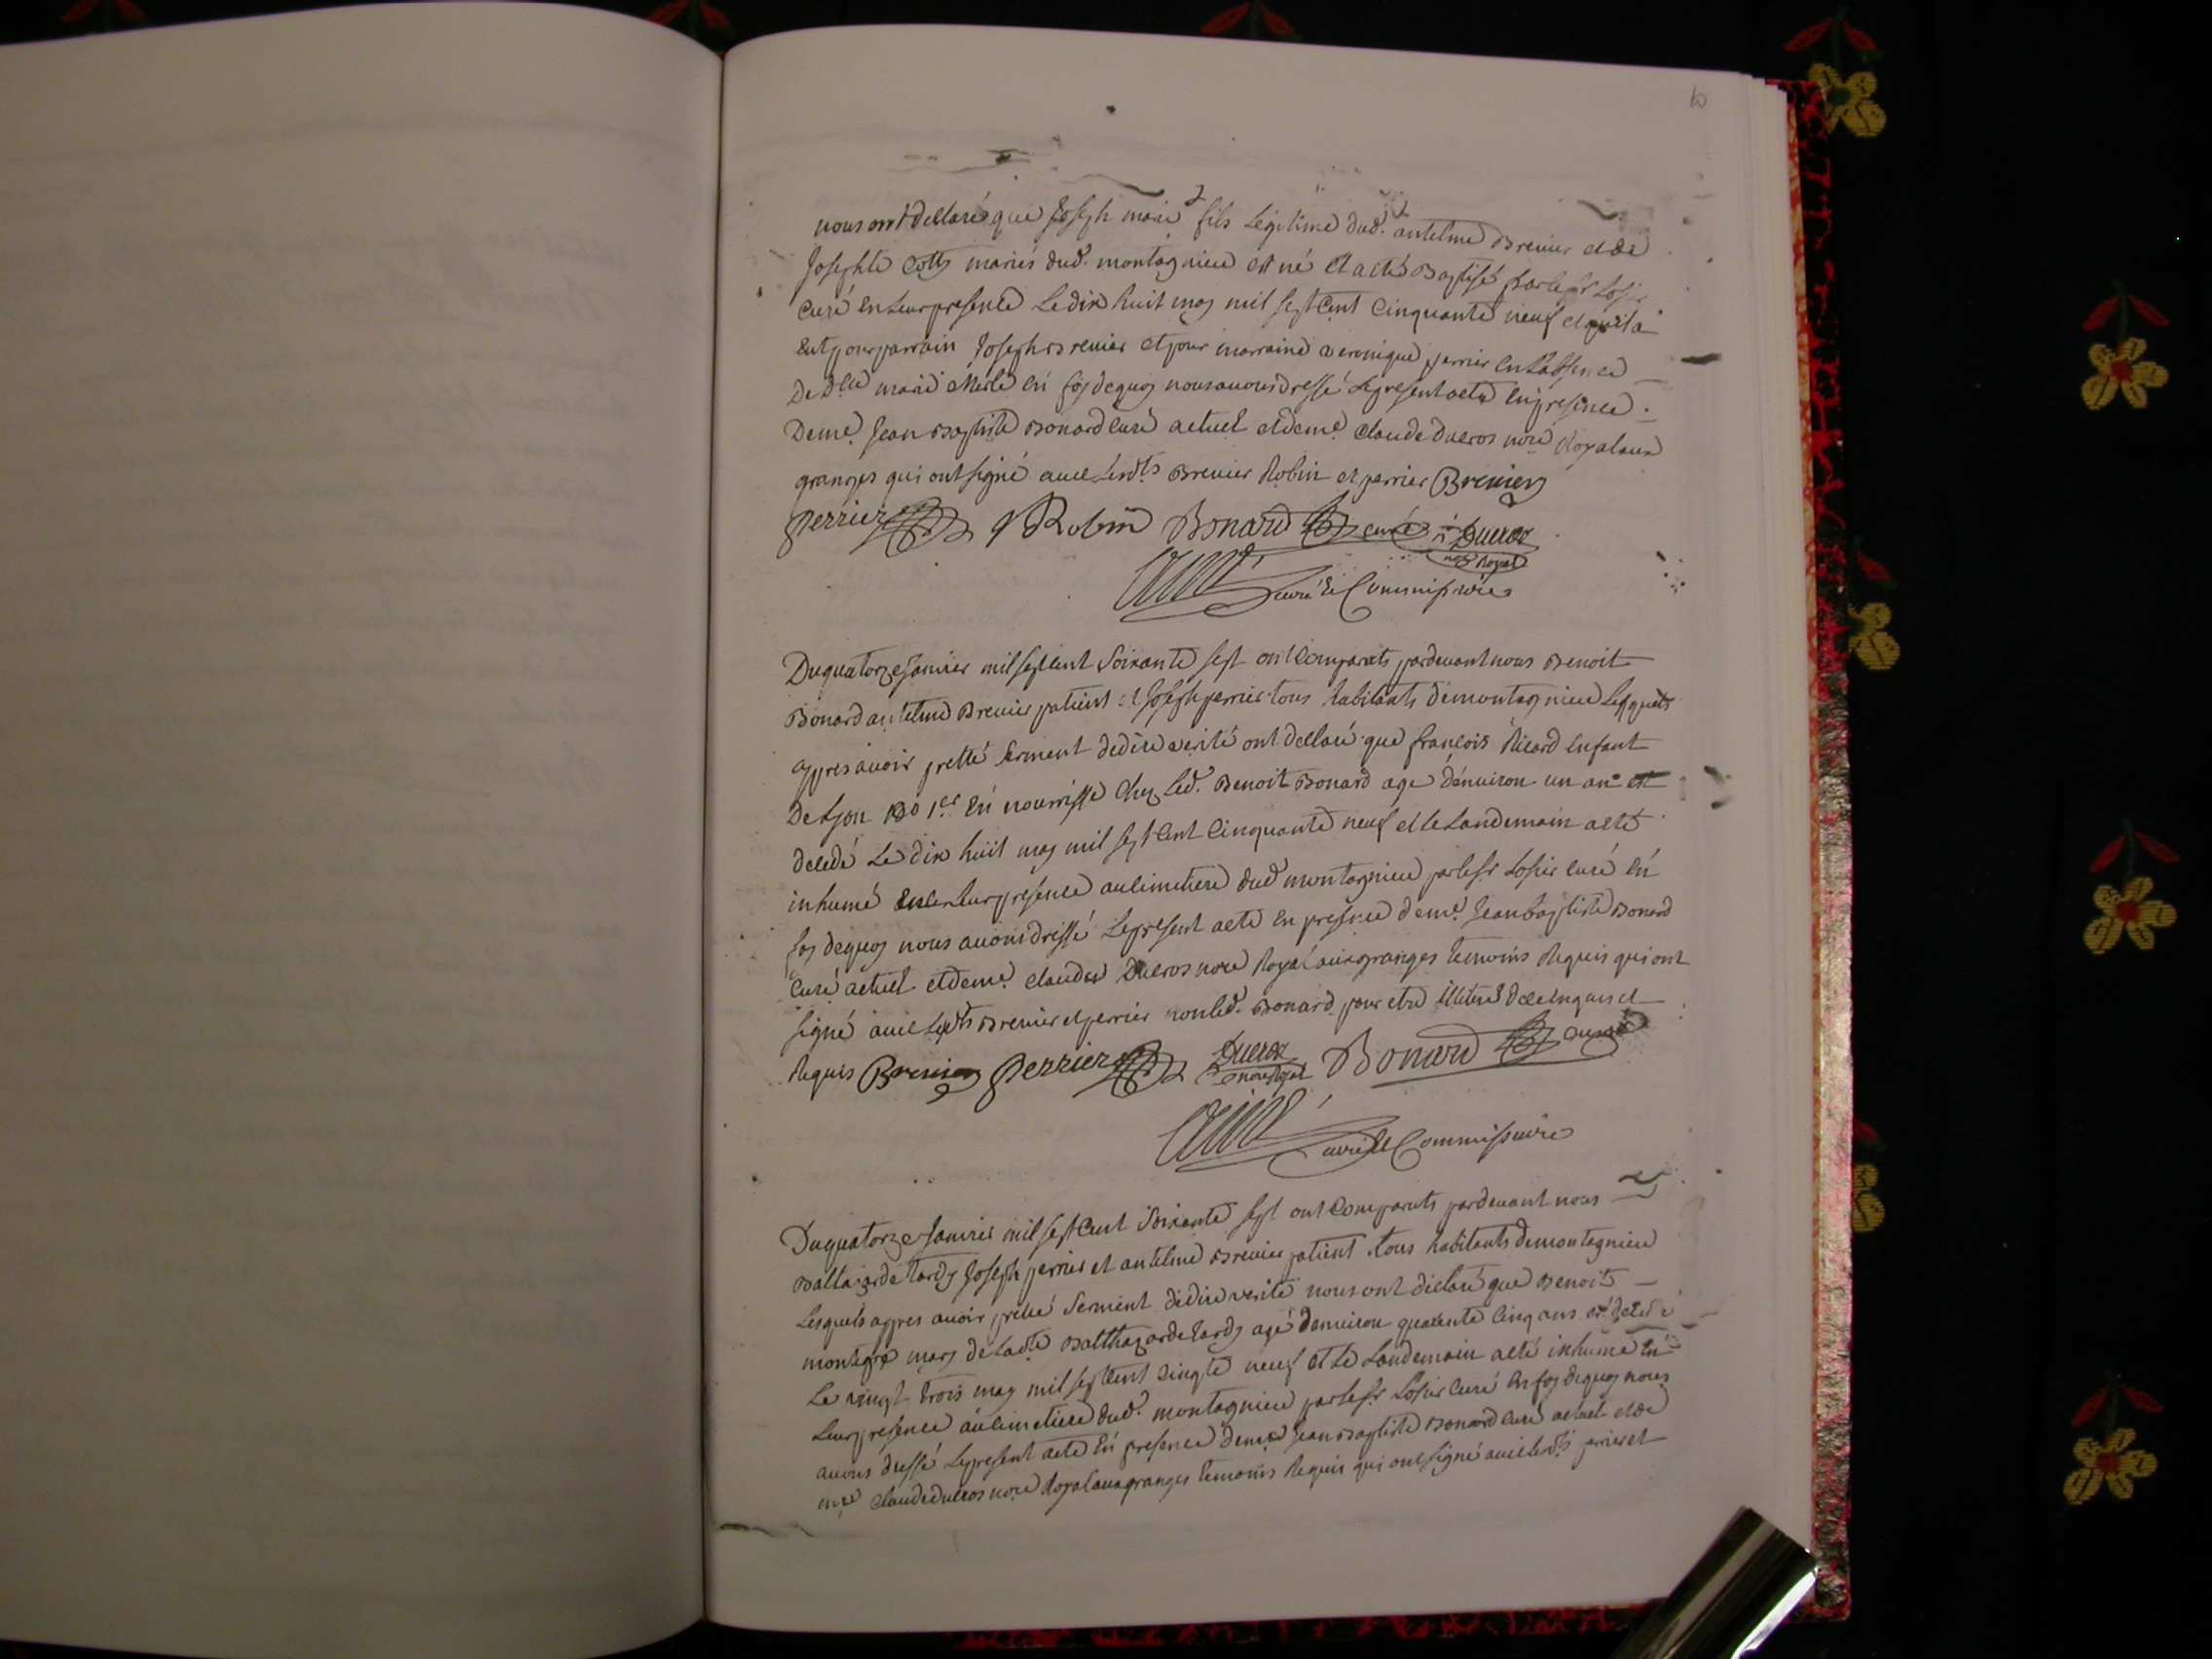 nous ont dellaré que Joseph marie fils Legitime dud. antelme Brenier et de
Josephte Cotty mariés dud. montagnieu est né et a eté Baptisé par le Sr Losier
Curé en Leur presence Le dix huit may mil sept Cent Cinquante neuf et qu'il a
eut pour parrain Joseph Brenier et pour marraine veronique perrier en L'absence
De Dlle marie Merle en foy de quoy nous avons dressé Le present acte en presence
De me. Jean Baptiste Bonard Curé actuel et de me. Claude Ducros nore Royal aux
granges qui ont signé avec Lesdts Brenier Robin et perrier Brenier
Perrier J Robin Bonard curé Ducros
nore Royal
curé et Commissaire
Du quatorze Janvier mil sept Cent Soixante sept ont Comparuts pardevant nous Benoit
Bonard antelme Brenier patient et Joseph perrier tous habitants de montagnieu Lesquels
appres avoir pretté serment de dire verité ont dellaré que françois Ricard Enfant
De Lyon En nourrisse Chez Led. Benoit Bonard age d'environ un an est
decedé Le dix huit may mil sept Cent Cinquante neuf et le Landemain a eté
inhumé en Leur presence au Cimetiere dud montagnieu par le Sr Losier Curé En
foy de quoy nous avons dressé Le present acte En presence de me. Jean baptiste Bonard
Curé actuel et de me. Claude Ducros nore Royal aux granges temoins Requis qui ont
signé avec Lesdts Brenier et perrier non led. Bonard pour etre illiteré de ce enquis et
Requis Brenier Perrier Ducros nore Royal Bonard curé
curé et Commissaire
Du quatorze Janvier mil sept Cent Soixante sept ont Comparuts pardevant nous
Baltazarde tardy Joseph perrier et antelme Brenier patient tous habitants de montagnieu
Lesquels appres avoir pretté Serment de dire verité nous ont dielaré que Benoit
montegre mary de Ladte Balthazarde tardy agé d'environ quarente Cinq ans est decedé
Le vingt trois may mil sept Cent Cinqte neuf et Le Landemain a eté inhumé En
Leur presence au Cimetiere dud. montagnieu par le Sr Losier Curé En foy de quoy nous
avons dressé Le present acte En presence de me Jean Baptiste Bonard Curé actuel et de
me Claude Ducros nore Royal aux granges temoins Requis qui ont signé avec Lesdts perrier et